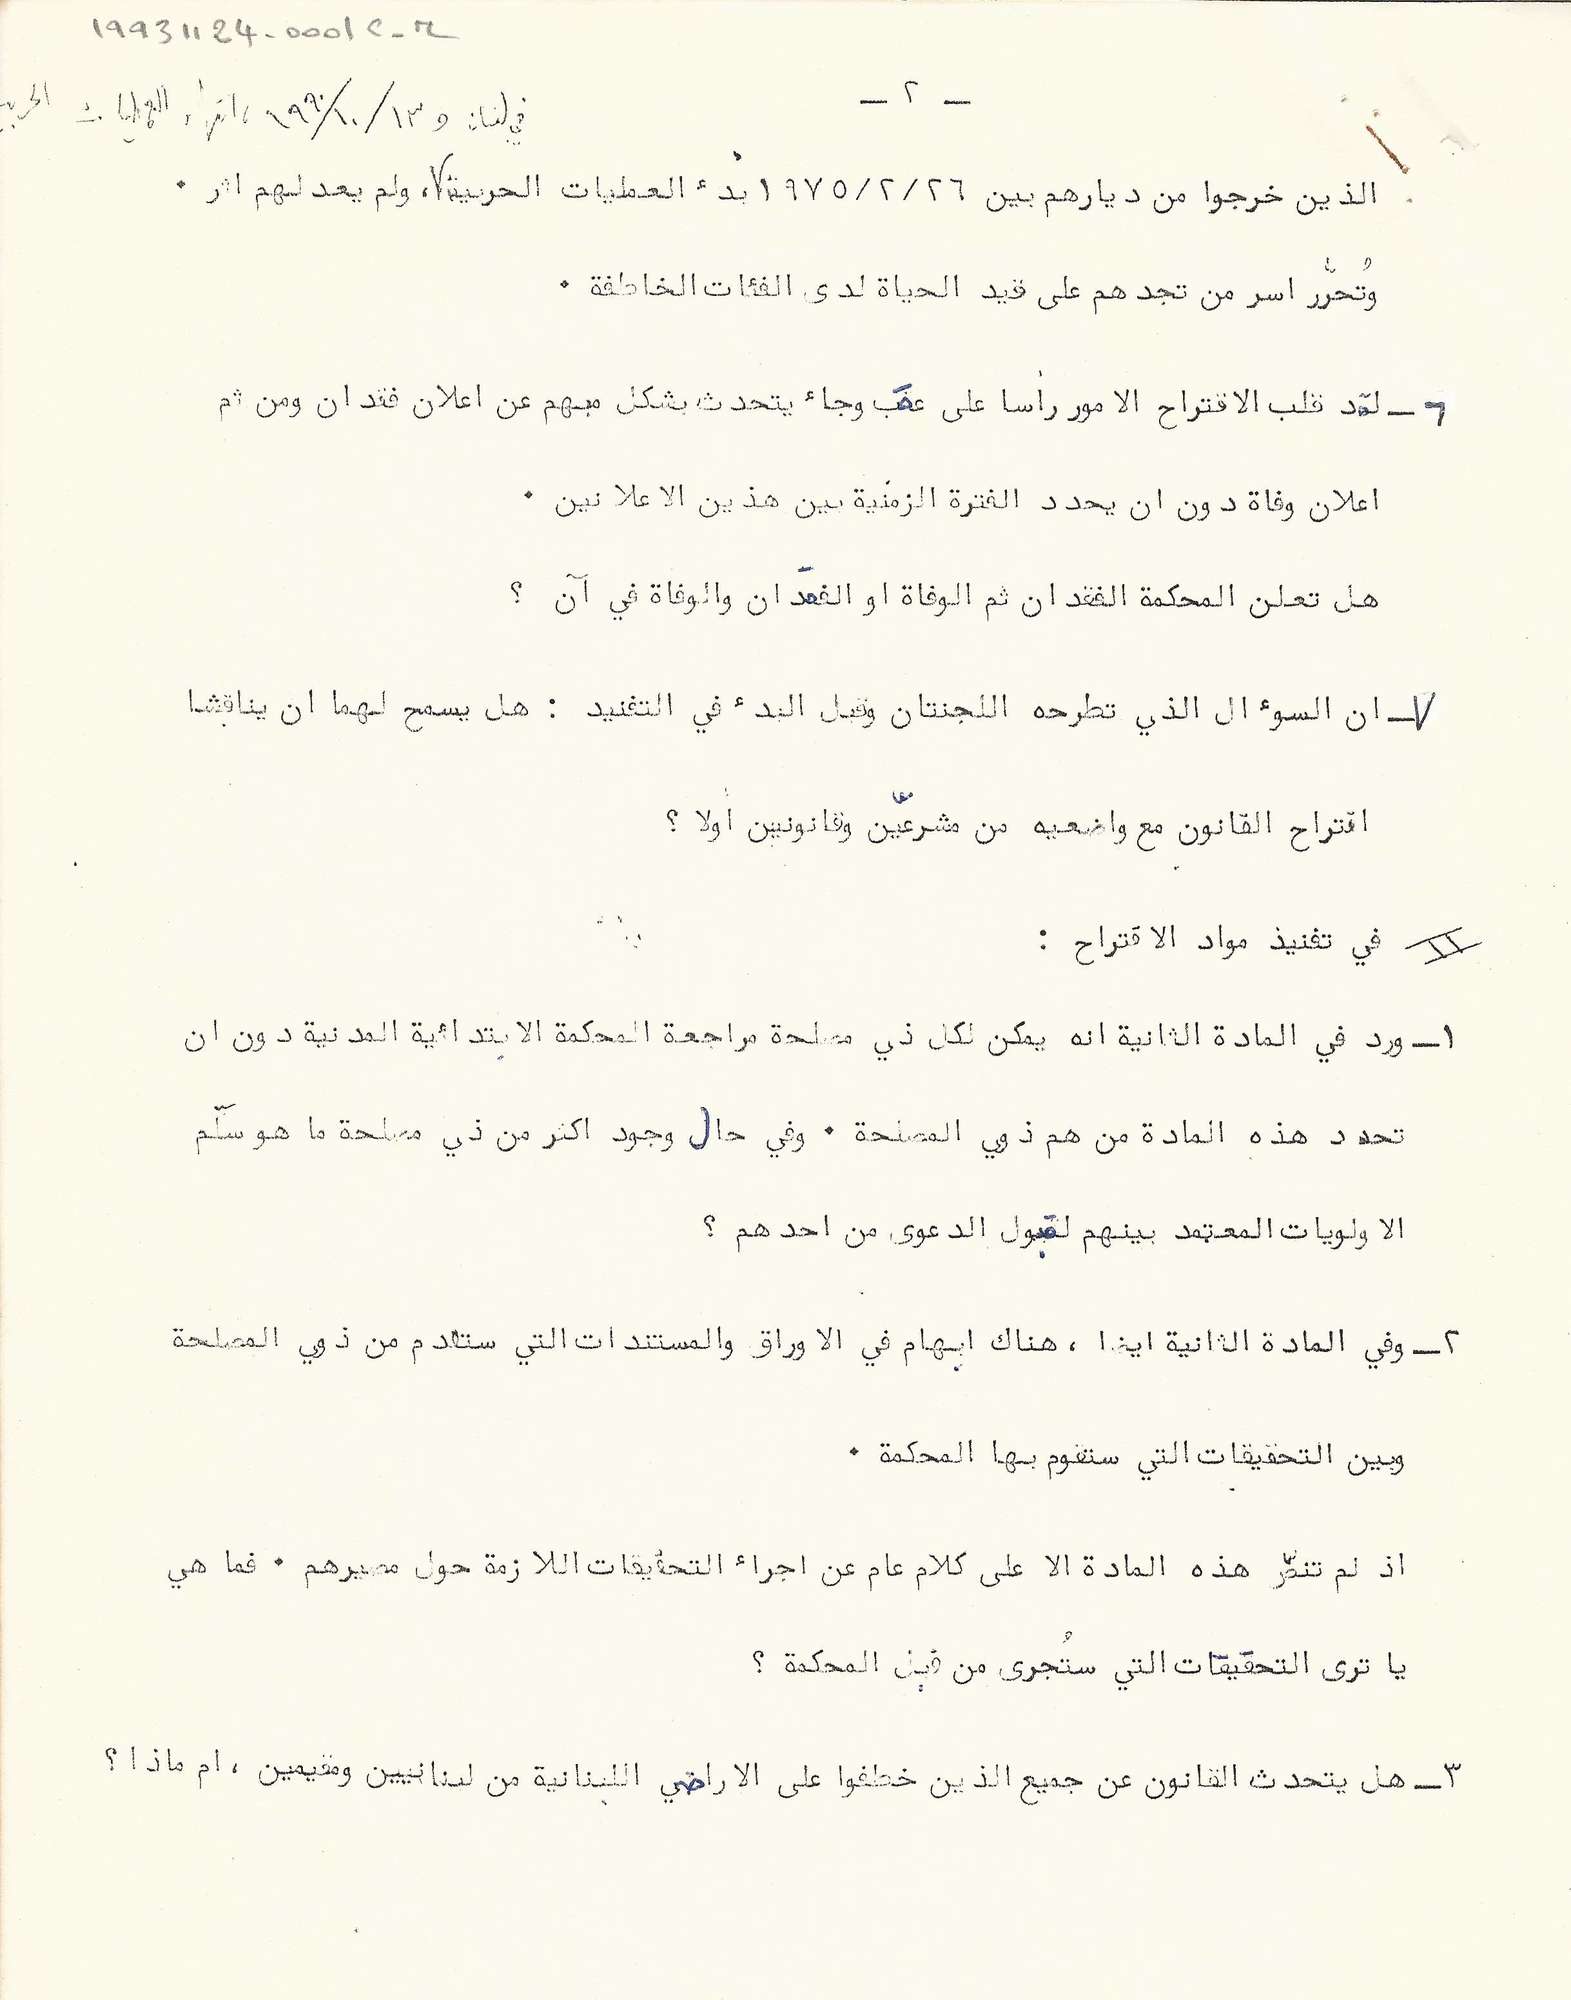 19931124-0001C-M
- ٢ -
في لبنان و ١٣/١٠/١٩٩٠، انتهاء العمليات الحربية
الذين خرجوا من ديارهم بين ١٩٧٥/٢/٢٦ بدء العمليات الحربية، ولم يعد لهم اثر ٠
وتُحرّر اسر من تجدهم على قيد الحياة لدى الفئات الخاطفة ٠
٦ـ لقد قلب الاقتراح الامور رأسا على عقب وجاء يتحدث بشكل مبهم عن اعلان فقدان ومن ثم
اعلان وفاة دون ان يحدد الفترة الزمنية بين هذين الاعلانين ٠
هل تعلن المحكمة الفقدان ثم الوفاة او الفقدان والوفاة في آن ؟
٧ـ ان السوءال الذي تطرحه اللجنتان وقبل البدء في التفنيد : هل يسمح لهما ان يناقشا
اقتراح القانون مع واضعيه من مشرعّين وقانونيين أولا ؟
II في تفنيذ مواد الاقتراح :
١ـ ورد في المادة الثانية انه يمكن لكل ذي مصلحة مراجعة المحكمة الابتدائية المدنية دون ان
تحدد هذه المادة من هم ذوي المصلحة ٠ وفي حال وجود اكثر من ذي مصلحة ما هو سلّم
الاولويات المعتمد بينهم لقبول الدعوى من احدهم ؟
٢ـ وفي المادة الثانية ايضا ، هناك ابهام في الاوراق والمستندات التي ستقدم من ذوي المصلحة
وبين التحقيقات التي ستقوم بها المحكمة ٠
اذ لم تنصّ هذه المادة الا على كلام عام عن اجراء التحقيقات اللازمة حول مصيرهم ٠ فما هي
يا ترى التحقيقات التي ستُجرى من قبل المحكمة ؟
٣ـ هل يتحدث القانون عن جميع الذين خطفوا على الاراضي اللبنانية من لبنانيين ومقيمين ، ام ماذا ؟